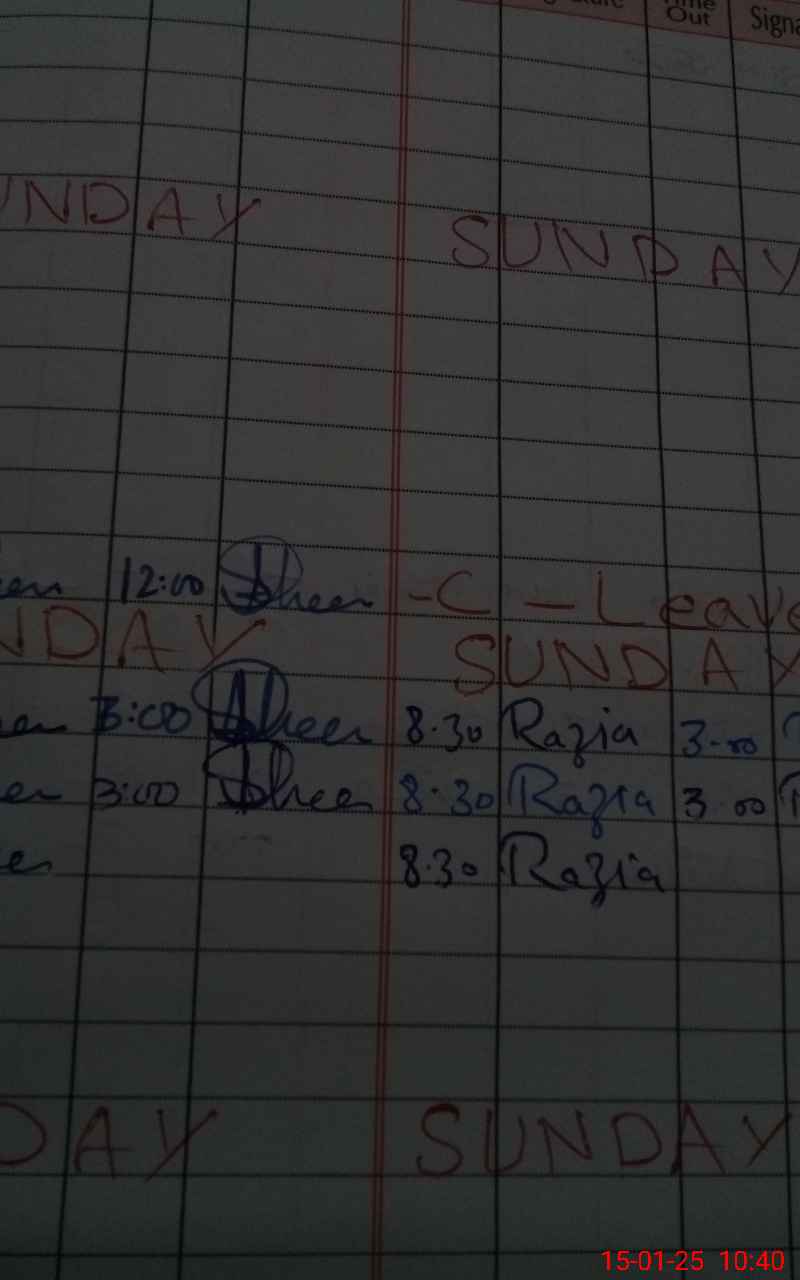 Out
SUNDAY SUNDAY
12:00 Sheen -C-Leave
NDAY SUNDAY
3:00 Sheen 8.30 Razia 3-00
3:00 Sheen 8.30 Razia 3 00
8.30 Razia
DAY SUNDAY
15-01-25 10:40